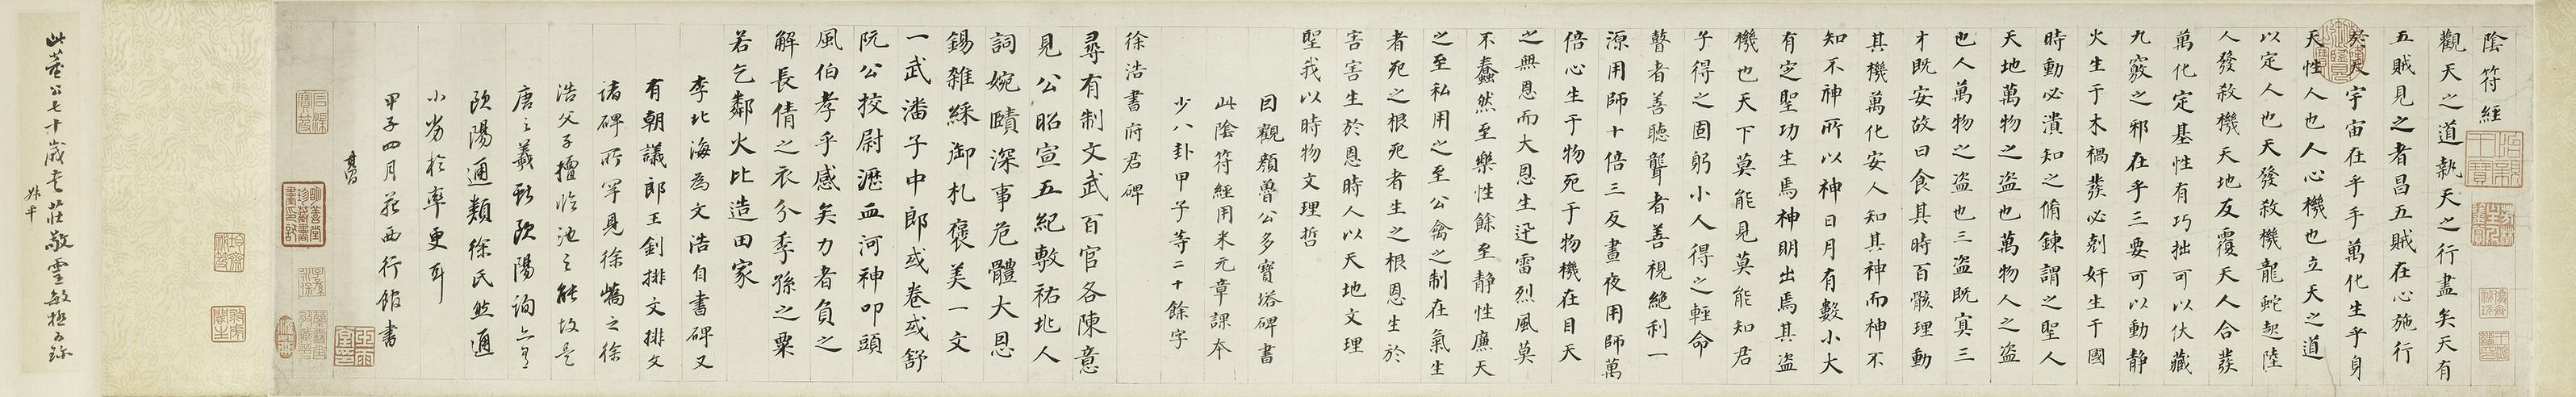 陰符經
觀天之道執天之行盡矣天有
五賊見之者昌五賊在心施行
於天宇宙在乎手萬化生乎身
天性人也人心機也立天之道
以定人也天發殺機龍蛇起陸
人發殺機天地反覆天人合發
萬化定基性有巧拙可以伏藏
九竅之邪在乎三要可以動靜
火生于木禍發必剋奸生于國
時動必潰知之脩鍊謂之聖人
天地萬物之盜也萬物人之盜
也人萬物之盜也三盜既冥三
才既安故曰食其時百骸理動
其機萬化安人知其神而神不
知不神所以神日月有數小大
有定聖功生焉神明出焉其盜
機也天下莫能見莫能知君
子得之固躬小人得之輕命
瞽者善聽聾者善視絕利一
源用師十倍三反晝夜用師萬
倍心生于物死于物機在目天
之無恩而大恩生迅雷烈風莫
不蠢然至樂性餘至靜性廉天
之至私用之至公禽之制在氣生
者死之根死者生之根恩生於
害害生於恩時人以天地文理
聖我以時物文理哲
因觀顏魯公多寶塔碑書
此陰符經用米元章課本
少八卦甲子等二十餘字
徐浩書府君碑
尋有制文武百官各陳意
見公昭宣五紀敷祐兆人
詞婉賾深事危體大恩
錫雜綵御札褒美一文
一武潘子中郎或卷或舒
阮公挍尉瀝血河神叩頭
風伯孝乎感矣力者負之
解長倩之衣分季孫之粟
若乞鄰火比造田家
李北海為文浩自書碑又
有朝議郎王釗排文排文
諸碑所罕見徐嶠之徐
浩父子擅臨池之能故是
唐之羲獻歐陽詢亦有
歐陽通類徐氏然通
小劣於率更耳
甲子四月苑西行館書
其昌
此董公七十歲書莊敬靈敏極可珍